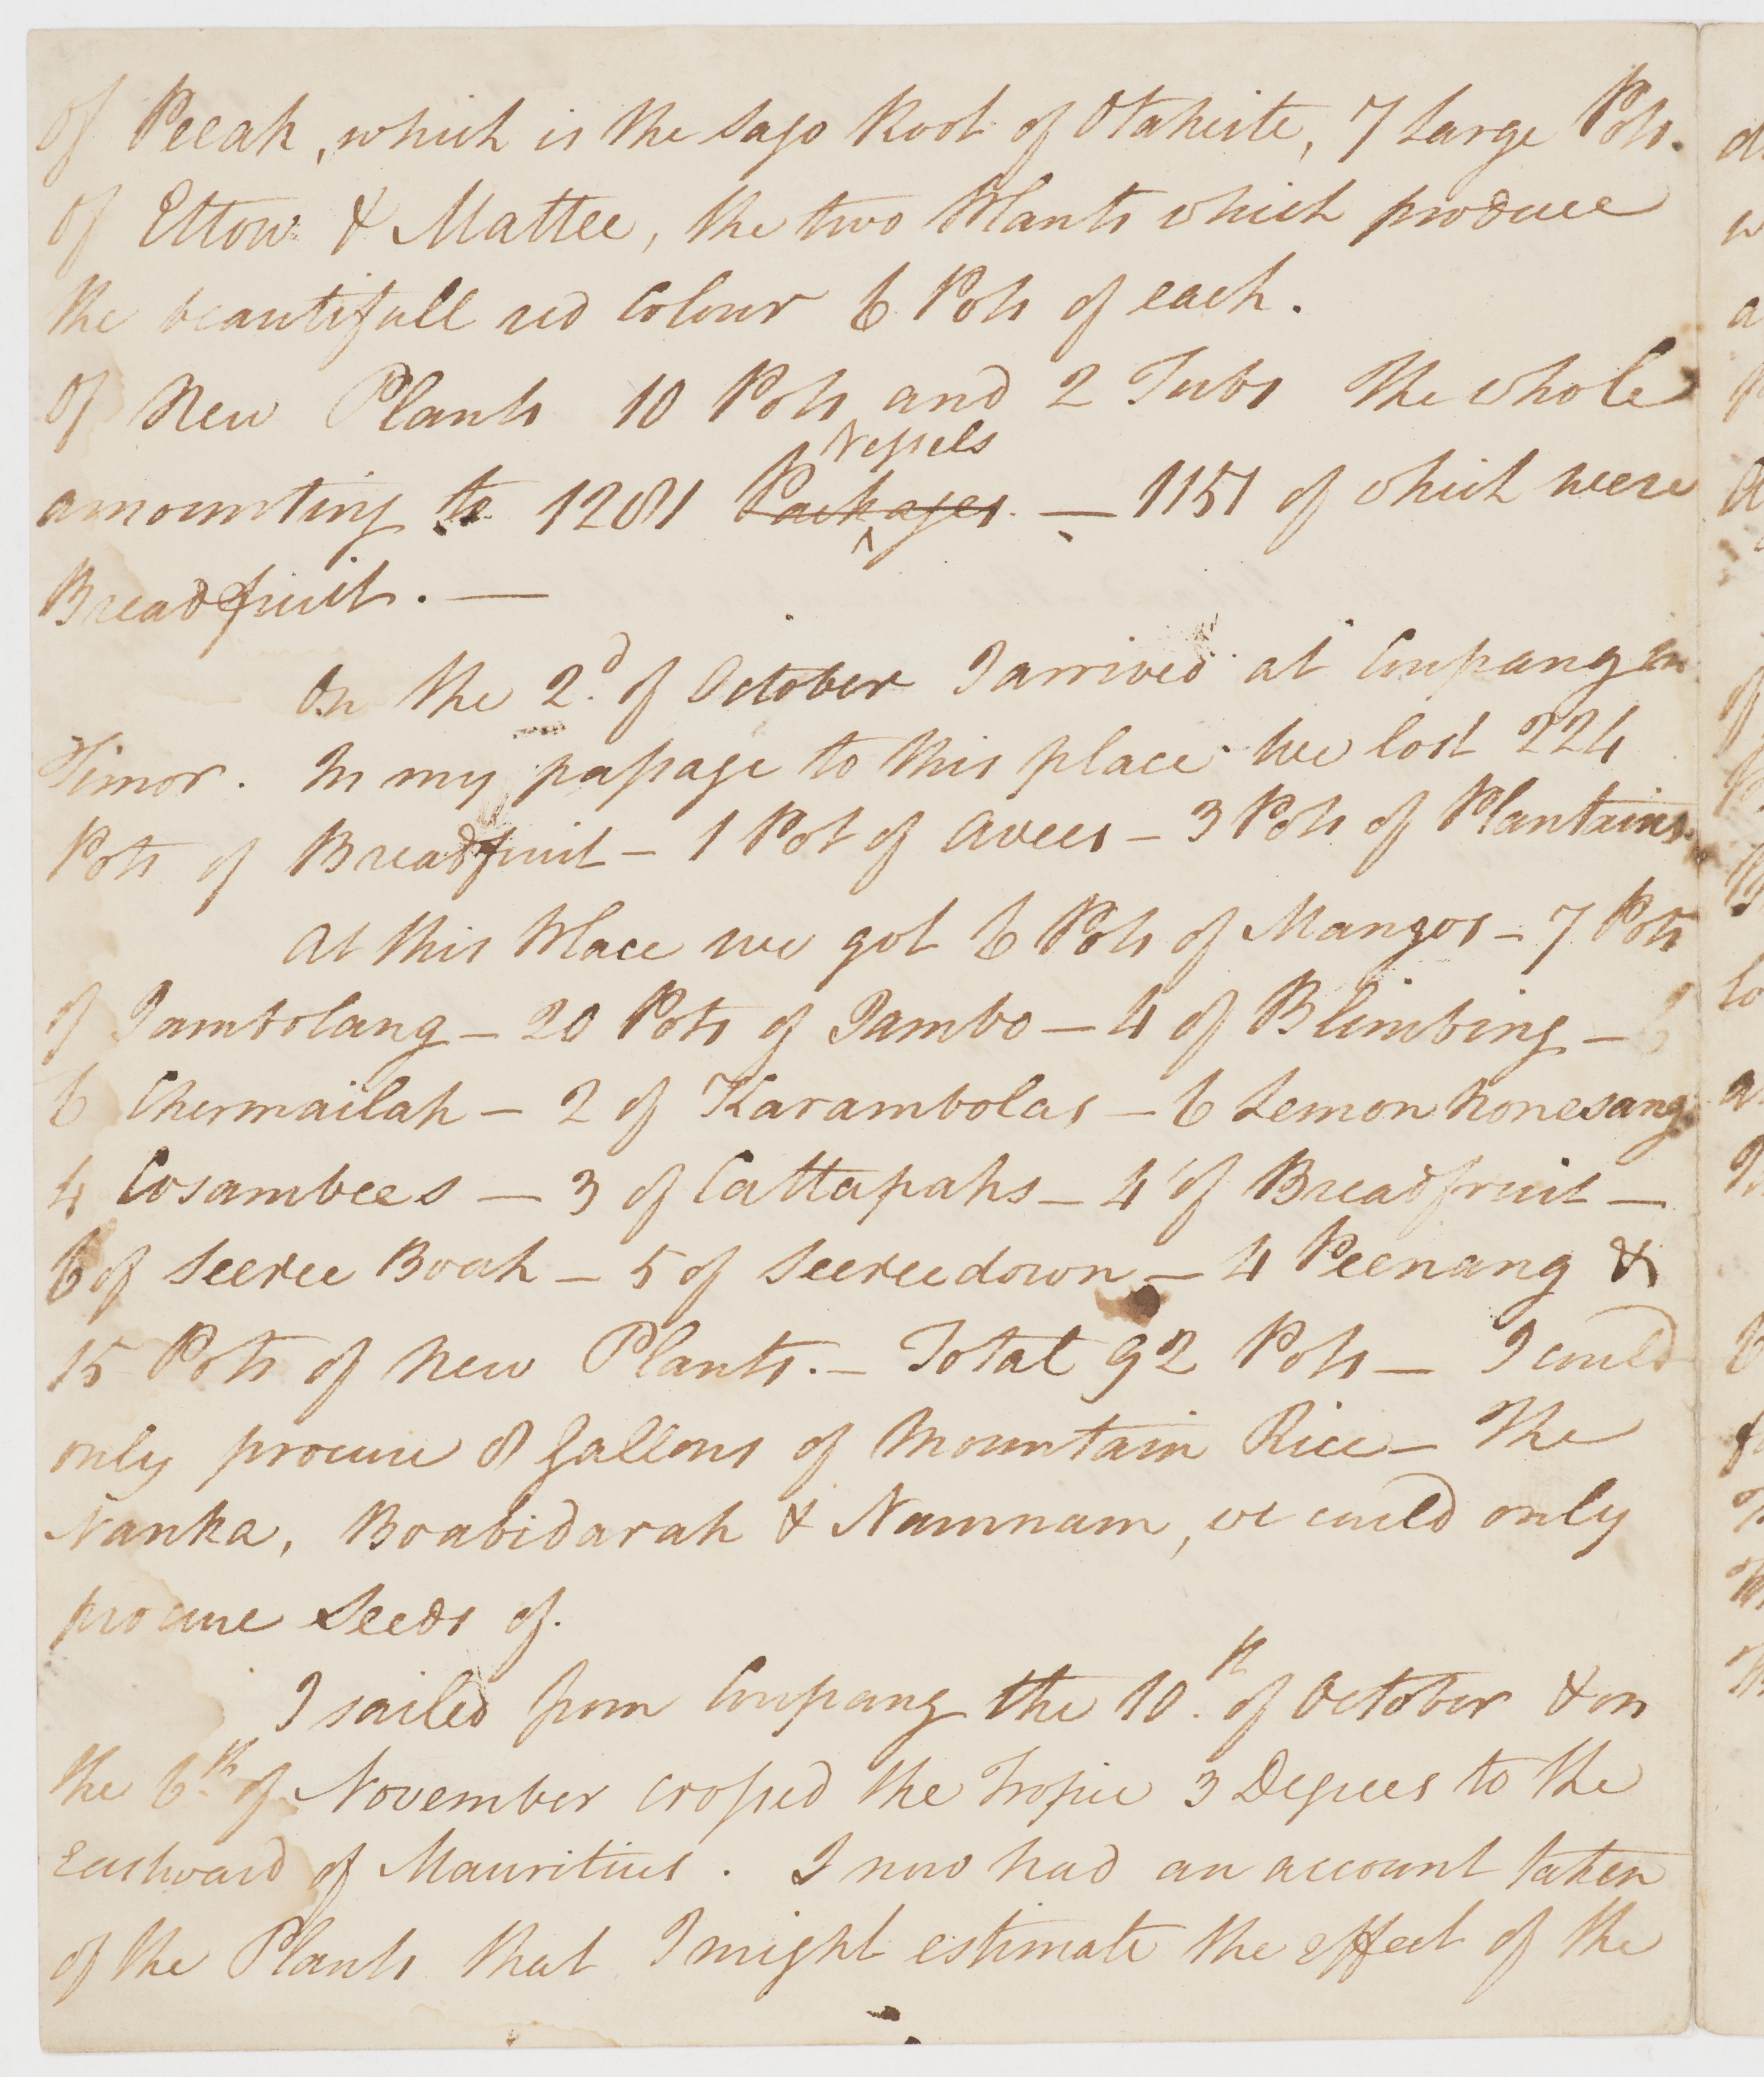 of Peeah, which is the Sago Root of Otaheite, 7 Large Pots.
of Ettow & Mattee, the two Plants which produce
the beautifull red Colour 6 Pots of each.
Of New Plants 10 Pots and 2 Tubs The whole
Vessels
amounting to 1281 Packages — 1151 of which were
Breadfruit. —
On the 2d. of October I arrived at Coupang in
Timor. In my passage to this place we lost 224
Pots of Breadfruit – 1 Pot of Avees – 3 Pots of Plantains.
At this Place we got 6 Pots of Mangos – 7 Pots
of Jambolang – 20 Pots of Jambo – 4 of Blimbing –
6 Chermailah – 2 of Karambolas – 6 Lemon honesang
4 Cosambees – 3 of Cattapahs – 4 of Breadfruit –
6 of Seeree Boah – 5 of Seereedown – 4 Peenang &
15 Pots of New Plants. – Total 92 Pots – I could
only procure 8 Gallons of Mountain Rice – The
Nanka, Boabidarah & Namnam, we could only
procure Seeds of.
I sailed from Coupang the 10th. of October & on
the 6th. of November crossed the Tropic 3 Degrees to the
Eastward of Mauritius. I now had an account taken
of the Plants that I might estimate the effect of the